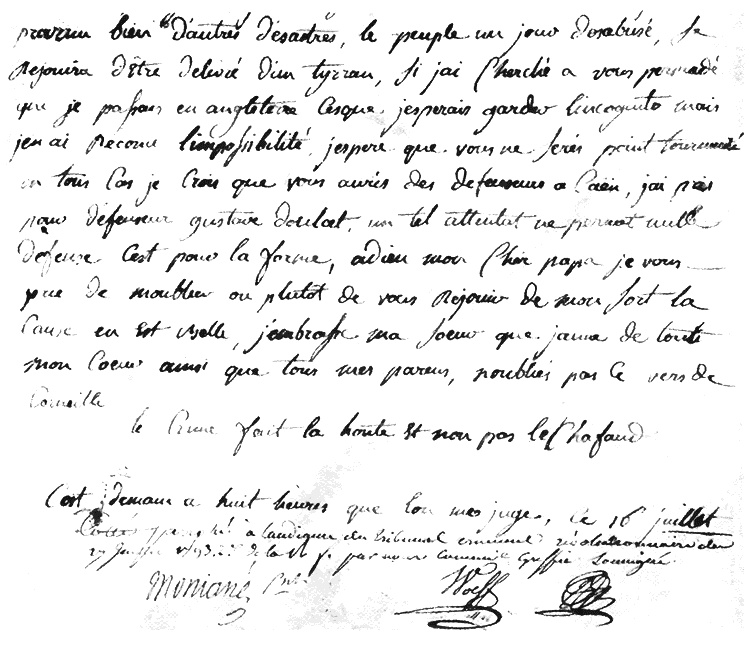 prevenu bien d'autres desastres, le peuple un jour desabusé, se
rejouira d'être delivré d'un tyrran, si jai Cherché a vous persuadé
que je passais en angleterre Cesque jesperais garder lincognito mais
jen ai reconu limpossibilité, jespere que vous ne serés point tourmenté
en tous Cas je Crois que vous auriés des defenseurs a Caën, jai pris
pour défenseur gustave doulcet, un tel attentat ne permet nulle
défense Cest pour la forme, adieu mon Cher papa je vous
prie de moublier ou plutot de vous rejouir de mon sort la
Cause en Est belle, jembrasse ma soeur que jaime de toute
mon Coeur ainsi que tous mes parens, noubliés pas Ce vers de
Corneille
le Crime fait la honte Et non pas lEchafaud
Cest demain a huit heures que lon me juge, Ce 16 juillet
a laudience du tribunal criminel révolutionnaire du
par nous Commis Greffier Soussigné
Montané Pnt
Wolff